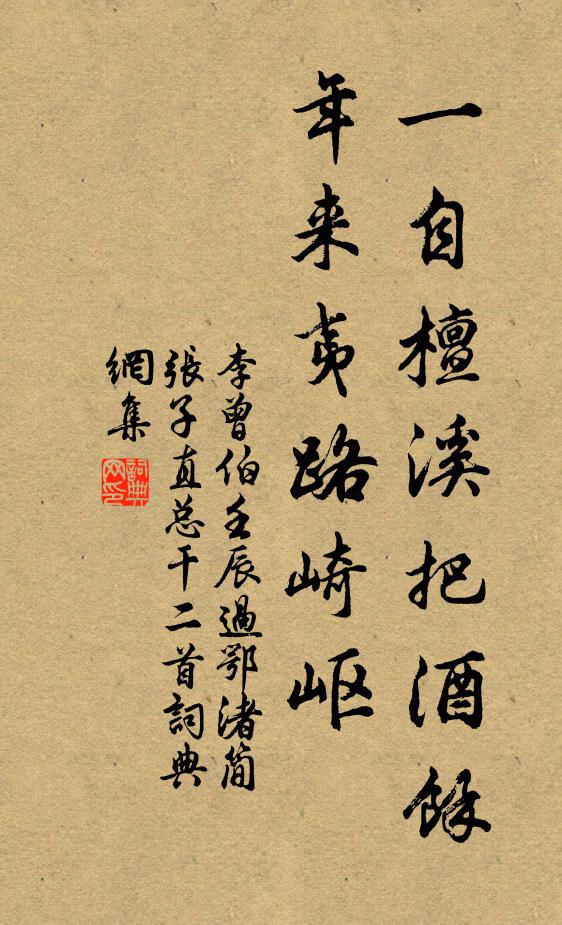 一自檀溪把酒餘
年来夷路崎岖
李曾伯壬辰過鄂渚简
張子直总干二首詞典
網集
詞典
网印